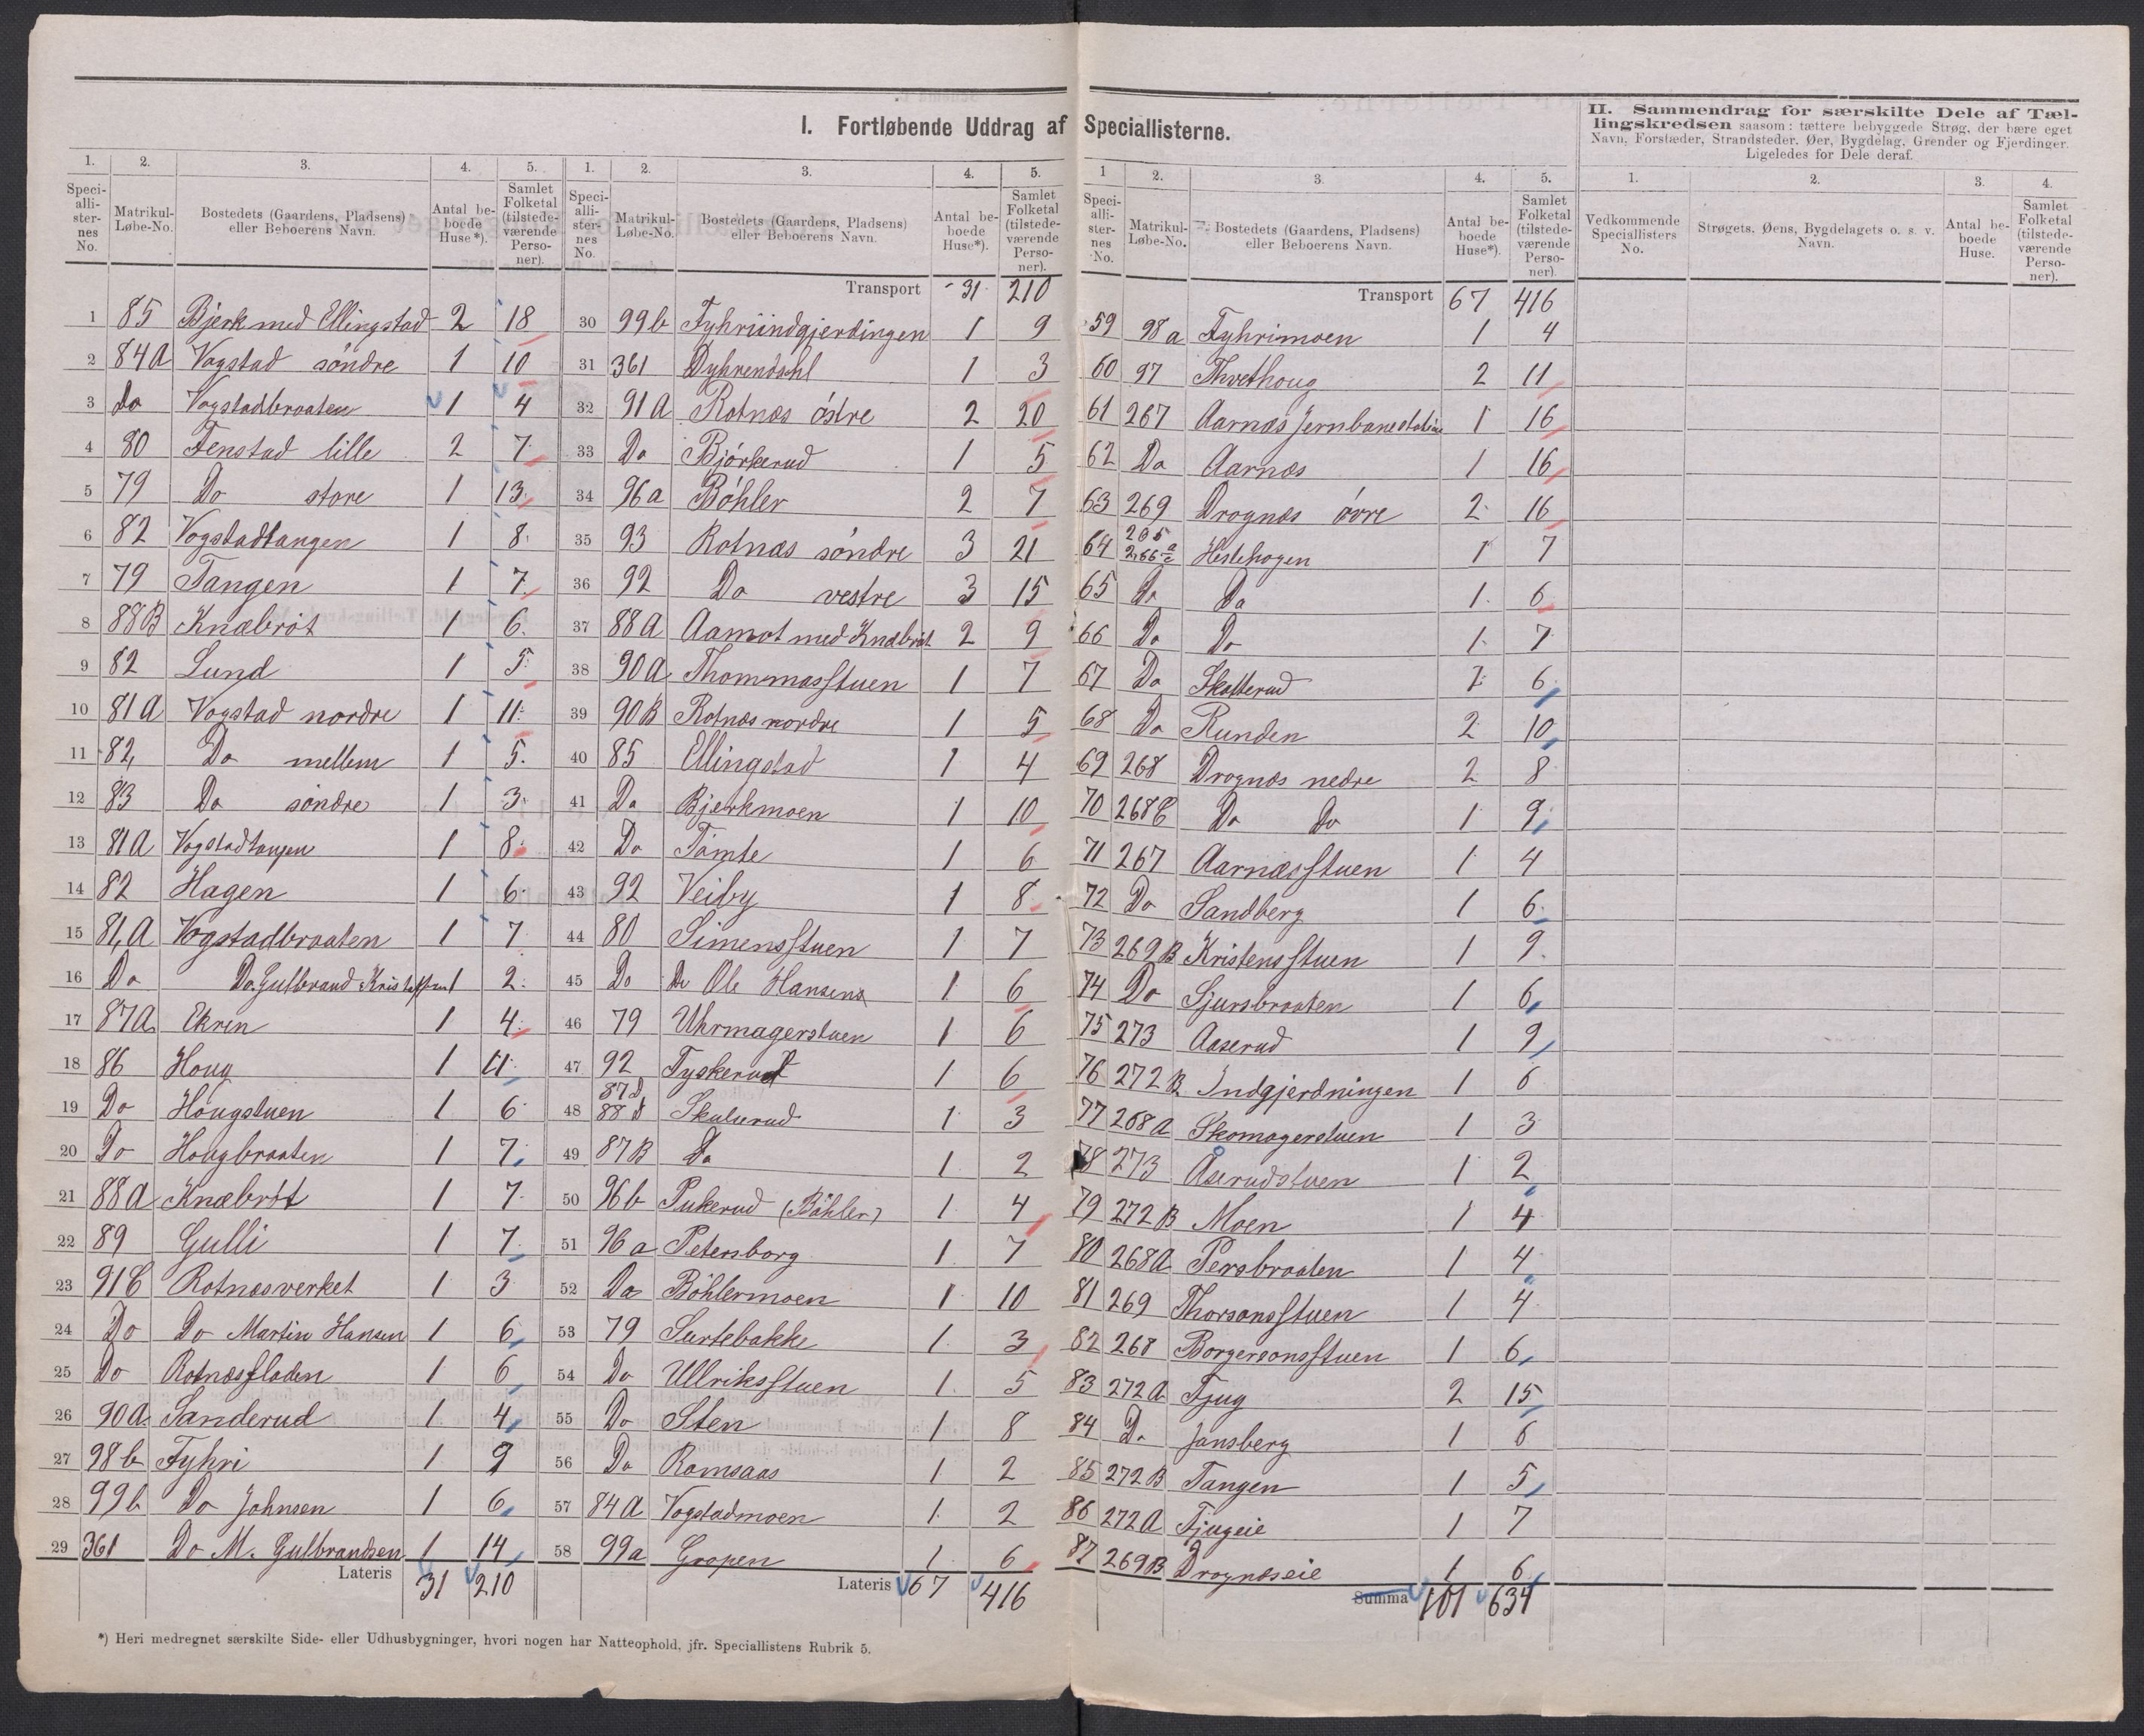 I. Fortløbende Uddrag af Speciallisterne.
II. Sammendrag for særskilte Dele af Tæl-
lingskredsen saasom: tættere bebyggede Strøg, der bære eget
Navn, Forstæder, Strandsteder, Øer, Bygdelag, Grender og Fjerdinger.
Ligeledes for Dele deraf.
1. 2. 3. 4. 5.
Speci-alli-ster-nes No. Matrikul-Løbe-No. Bostedets (Gaardens, Pladsens) eller Beboerens Navn. Antal be-boede Huse*). Samlet Folketal (tilstede-værende Perso-ner).
1 85 Bjerk med Ellingstad 2 18
2 84A Vogstad söndre 1 10
3 Do Vogstadbraaten 1 4
4 80 Fenstad lille 2 7
5 79 Do store 1 13
6 82 Vogstadtangen 1 8
7 79 Tangen 1 7
8 88B Knæbröt 1 6
9 82 Lund 1 5
10 81A Vogstad nordre 1 11
11 82 Do mellem 1 5
12 83 Do söndre 1 3
13 81A Vogstadtangen 1 8
14 82 Hagen 1 6
15 81A Vogstadbraaten 1 7
16 Do Do. Gulbrand Kristoffersen 1 2
17 87A Ekren 1 4
18 86 Houg 1 11
19 Do Hougstuen 1 6
20 Do Hougbraaten 1 7
21 88A Knæbröt 1 7
22 89 Gulli 1 7
23 91C Rotnæsverket 1 3
24 Do Do Martin Hansen 1 6
25 Do Rotnæsfladen 1 6
26 90A Sanderud 1 4
27 98b Fyhri 1 9
28 99b Do Johnsen 1 6
29 361 Do M. Gulbrandsen 1 14
Lateris 31 210
1. 2. 3. 4. 5.
Speci-alli-ster-nes No. Matrikul-Løbe-No. Bostedets (Gaardens, Pladsens) eller Beboerens Navn. Antal be-boede Huse*). Samlet Folketal (tilstede-værende Perso-ner).
Transport 31 210
30 99b Fyhriindgjerdingen 1 9
31 361 Dyhrendahl 1 3
32 91A Rotnæs östre 2 20
33 Do Björkerud 1 5
34 96a Böhler 2 7
35 93 Rotnæs söndre 3 21
36 92 Do vestre 3 15
37 88A Aamot med Knæbröt 2 9
38 90A Thommasstuen 1 7
39 90B Rotnæs nordre 1 5
40 85 Ellingstad 1 4
41 Do Bjerkmoen 1 10
42 Do Tömte 1 6
43 92 Veiby 1 8
44 80 Simensstuen 1 7
45 Do Do Ole Hansens 1 6
46 79 Uhrmagerstuen 1 6
47 92 Tyskerud 1 6
48 87D 88D Skulerud 1 3
49 87B Do 1 2
50 96b Pukerud (Böhler) 1 4
51 96a Petersborg 1 7
52 Do Böhlermoen 1 10
53 79 Surtebakke 1 3
54 Do Ullriksstuen 1 5
55 Do Sten 1 8
56 Do Ramsaas 1 2
57 84A Vogstadmoen 1 2
58 99a Gropen 1 6
Lateris 67 416
1 2. 3. 4. 5.
Speci-alli-ster-nes No. Matrikul-Løbe-No. Bostedets (Gaardens, Pladsens) eller Beboerens Navn. Antal be-boede Huse*). Samlet Folketal (tilstede-værende Perso-ner).
Transport 67 416
59 98a Fyhrimoen 1 4
60 97 Thvethoug 2 11
61 267 Aarnæs Jernbanestation 1 16
62 Do Aarnæs 1 16
63 269 Drognæs övre 2 16
64 265 Hestehagen 1 7
65 Do Do 1 6
66 Do Do 1 7
67 Do Skatterud 1 6
68 Do Runden 2 10
69 268 Drognæs nedre 2 8
70 268C Do Do 1 9
71 267 Aarnæsstuen 1 4
72 Do Sandberg 1 6
73 269B Kristensstuen 1 9
74 Do Sjursbraaten 1 6
75 273 Aaserud 1 9
76 272B Indgjerdningen 1 6
77 268A Skomagerstuen 1 3
78 273 Åserudstuen 1 2
79 272B Moen 1 4
80 268A Persbraaten 1 4
81 269 Thorsonsstuen 1 4
82 268 Borgersonsstuen 1 6
83 272A Fjug 2 15
84 Do Jansberg 1 6
85 272B Tangen 1 5
86 272A Fjugeie 1 7
87 269B Drognæseie 1 6
Summa 101 634
1. 2. 3. 4.
Vedkommende Speciallisters No. Strøgets, Øens, Bygdelagets o. s. v. Navn. Antal be-boede Huse. Samlet Folketal (tilstede-værende Perso-ner).
*) Heri medregnet særskilte Side- eller Udhusbygninger, hvori nogen har Natteophold, jfr. Speciallistens Rubrik 5.